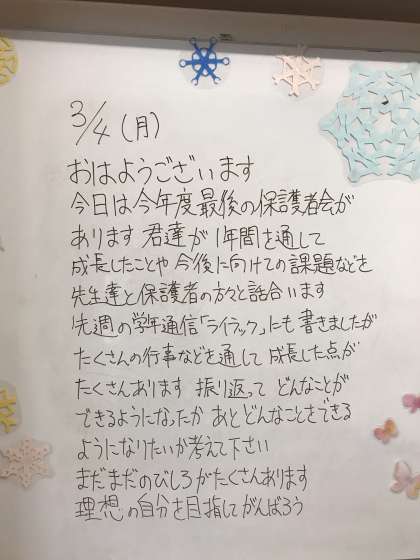 3/4(月)
おはようございます
今日は今年度最後の保護者会が
あります 君達が1年間を通して
成長したことや今後に向けての課題などを
先生達と保護者の方々と話合います
先週の学年通信「ライラック」にも書きましたが
たくさんの行事などを通して成長した点が
たくさんあります 振り返って どんなことが
できるようになったか あとどんなことをできる
ようになりたいか考えて下さい
まだまだのびしろがたくさんあります
理想の自分を目指してがんばろう